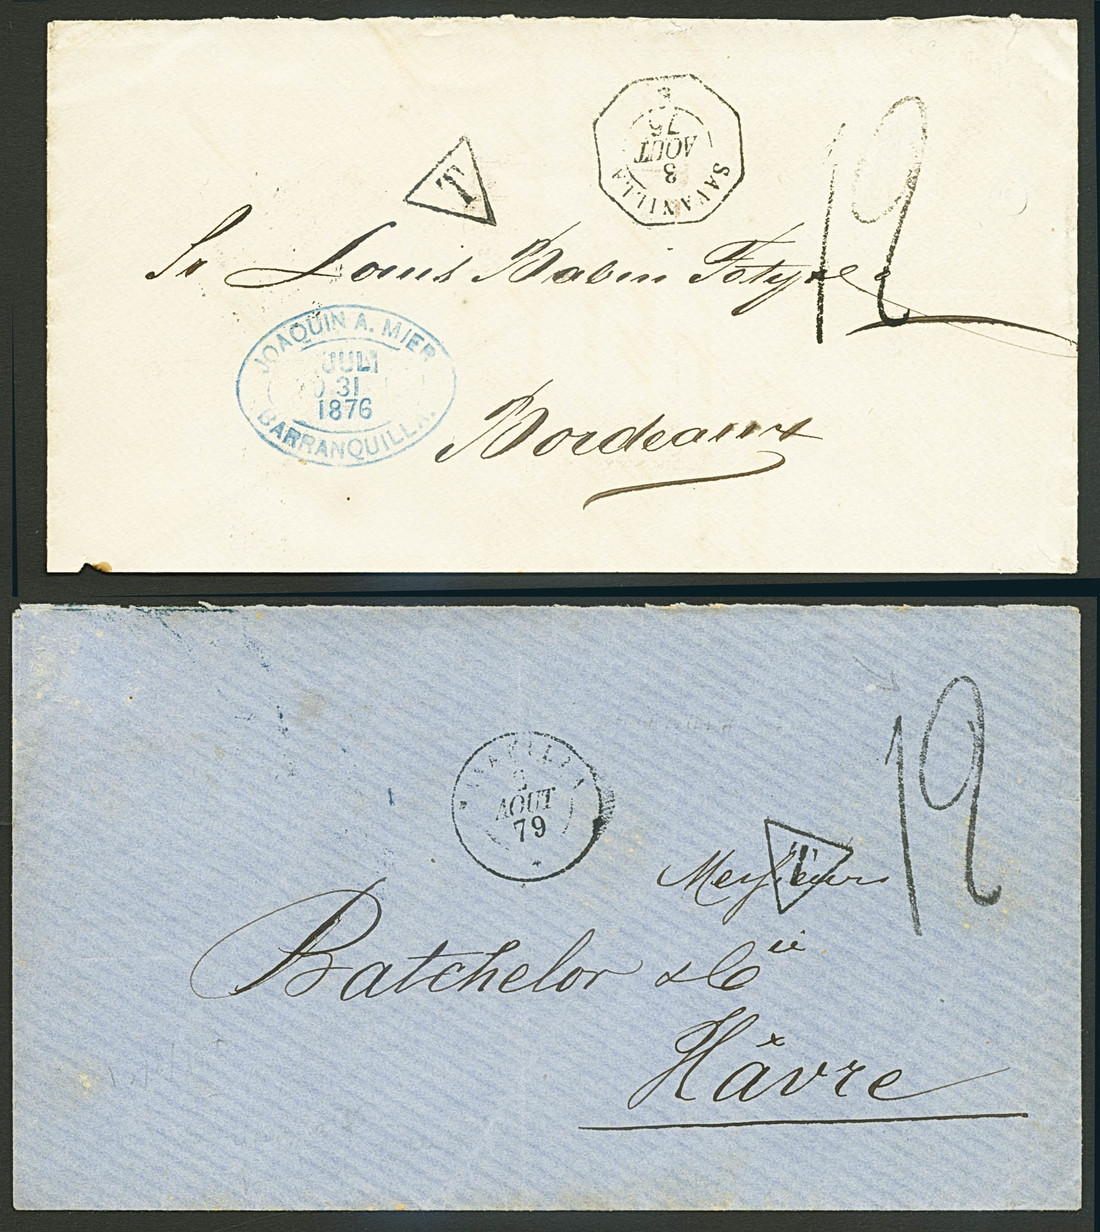 SAVANILLA
3
AOUT
76
T
12
Sr Louis Babin Fotyre
JOAQUIN A. MIER
JULI
31
1876
BARRANQUILLA.
Bordeaux
SAVANILLA
2
AOUT
79
T
12
Messieurs
Batchelor & Cie
Hâvre